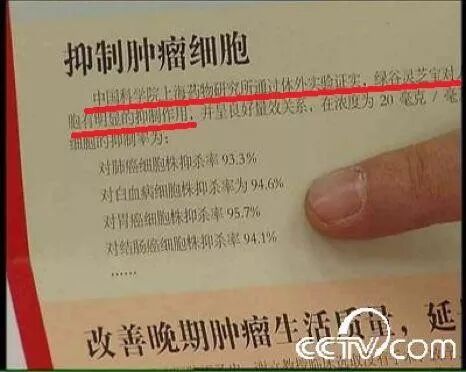 抑制肿瘤细胞
中国科学院上海药物研究所通过体外实验证实，绿谷灵芝宝对
胞有明显的抑制作用，并呈良好量效关系，在浓度为 20 毫克 / 毫
细胞的抑制率为：
对肺癌细胞株抑杀率 93.3%
对白血病细胞株抑杀率为 94.6%
对胃癌细胞株抑杀率 95.7%
对结肠癌细胞株抑杀率 94.1%
……
改善晚期肿瘤生活质量，延
CCTV.com